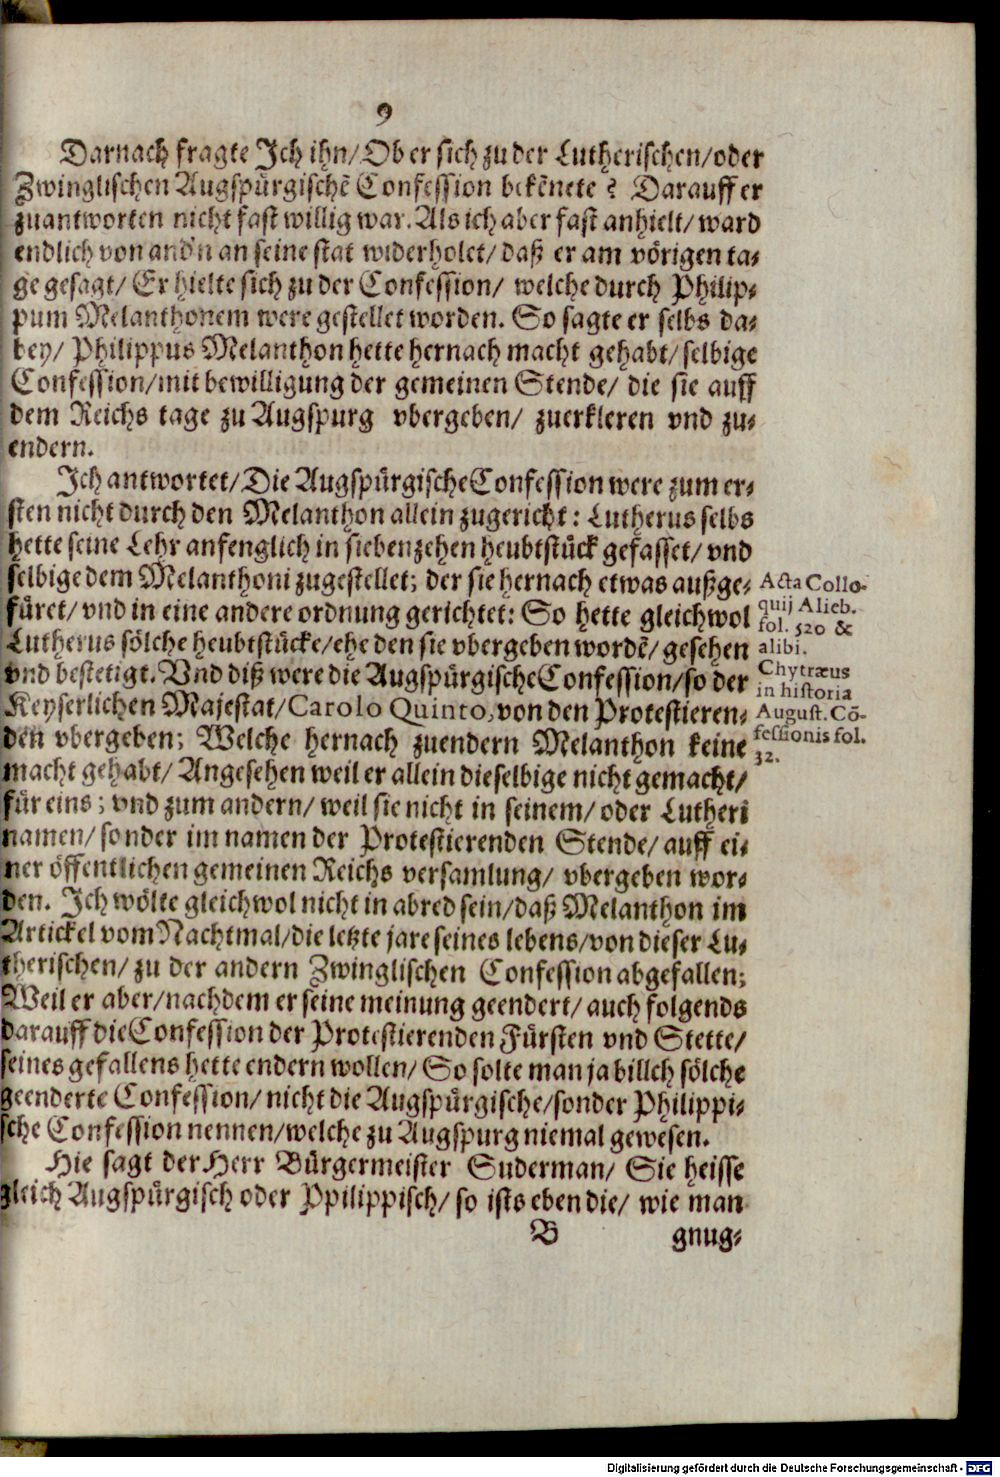 9
Darnach fragte Ich ihn/Ob er sich zu der Lutherischen/oder
Zwinglischen Augspürgischē Confession bekēnete? Darauff er
zuantworten nicht fast willig war. Als ich aber fast anhielt/ ward
endlich von and'n an seine stat widerholet/ daß er am vörigen ta-
ge gesagt/ Er hielte sich zu der Confession/ welche durch Philip-
pum Melanthonem were gestellet worden. So sagte er selbs da-
bey/ Philippus Melanthon hette hernach macht gehabt/ selbige
Confession/mit bewilligung der gemeinen Stende/ die sie auff
dem Reichs tage zu Augspurg vbergeben/ zuerkleren vnd zu-
endern.
Ich antwortet/Die Augspürgische Confession were zum er-
sten nicht durch den Melanthon allein zugericht: Lutherus selbs
hette seine Lehr anfenglich in siebenzehen heubtstück gefasset/ vnd
selbige dem Melanthoni zugestellet; der sie hernach etwas außge-
füret/ vnd in eine andere ordnung gerichtet: So hette gleichwol
Lutherus sölche heubtstücke/ehe den sie vbergeben wordē/ gesehen
vnd bestetigt. Vnd diß were die Augspürgische Confession/so der
Keyserlichen Majestat/Carolo Quinto, von den Protestieren-
den vbergeben; Welche hernach zuendern Melanthon keine
macht gehabt/ Angesehen weil er allein dieselbige nicht gemacht/
für eins; vnd zum andern/ weil sie nicht in seinem/ oder Lutheri
namen/ sonder im namen der Protestierenden Stende/ auff ei-
ner öffentlichen gemeinen Reichs versamlung/ vbergeben wor-
den. Ich wölte gleichwol nicht in abred sein/daß Melanthon im
Artickel vom Nachtmal/die letzte jare seines lebens/von dieser Lu-
therischen/ zu der andern Zwinglischen Confession abgefallen;
Weil er aber/nachdem er seine meinung geendert/ auch folgends
darauff die Confession der Protestierenden Fürsten vnd Stette/
seines gefallens hette endern wollen/ So solte man ja billch sölche
geenderte Confession/ nicht die Augspürgische/sonder Philippi-
sche Confession nennen/welche zu Augspurg niemal gewesen.
Hie sagt der Herr Bürgermeister Suderman/ Sie heisse
gleich Augspürgisch oder Ppilippisch/ so ists eben die/ wie man
B gnug-
Acta Collo-
quij Alieb.
fol. 520 &
alibi.
Chytræus
in historia
August. Cō-
fessionis fol.
32.
Digitalisierung gefördert durch die Deutsche Forschungsgemeinschaft - DFG